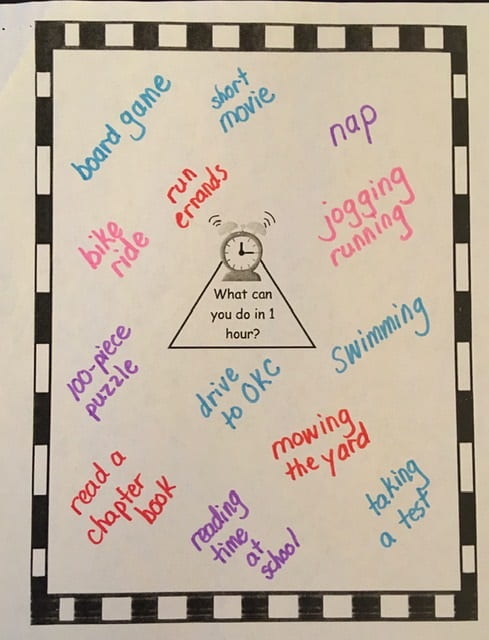 board game
short
movie
nap
run
errands
bike
ride
jogging
running
What can
you do in 1
hour?
100-piece
puzzle
drive
to OKC
swimming
mowing
the yard
read a
chapter
book
reading
time
at
school
taking
a test